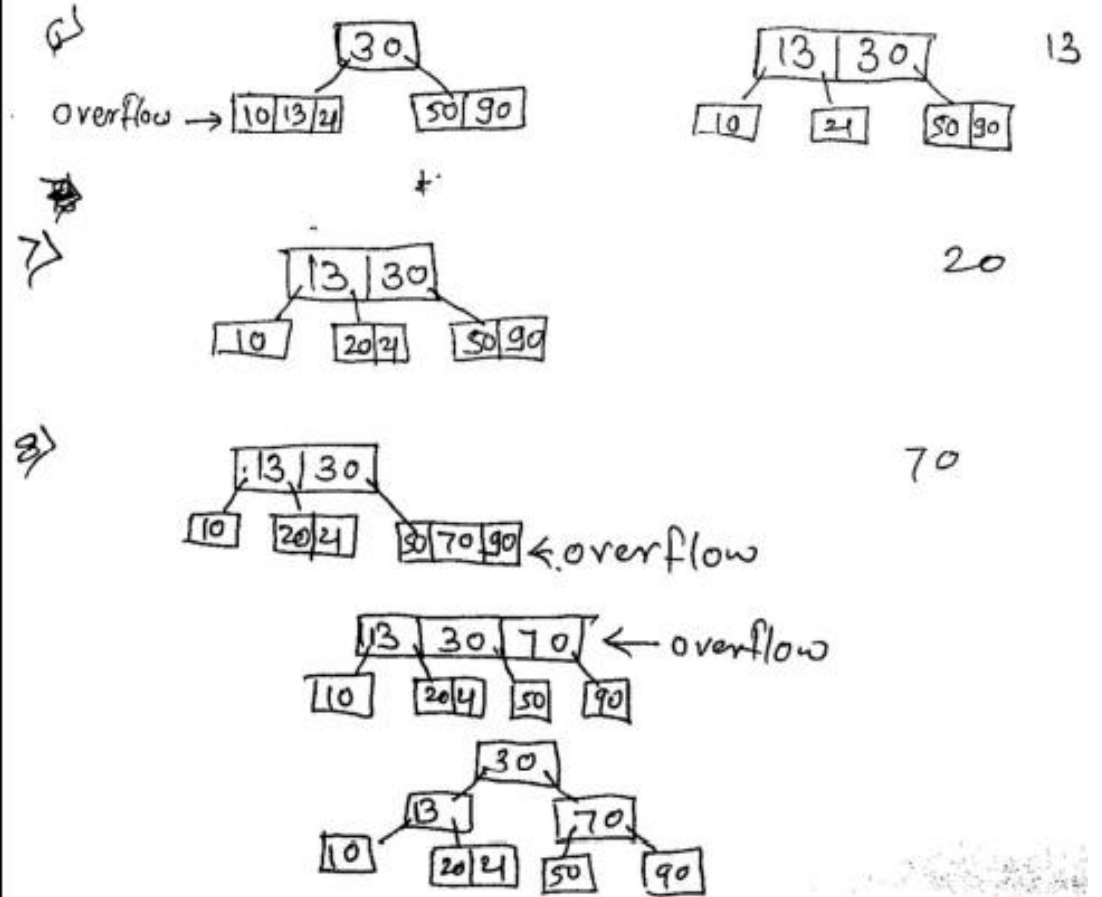 6)
30
30
13 30
13
overflow → 10 13 21
50 90
10
21
50 90
7)
13 30
20
10
20 21
50 90
8)
13 30
70
10
20 21
50 70 90 ← overflow
13 30 70 ← overflow
10
20 21
50
90
30
13
70
10
20 21
50
90